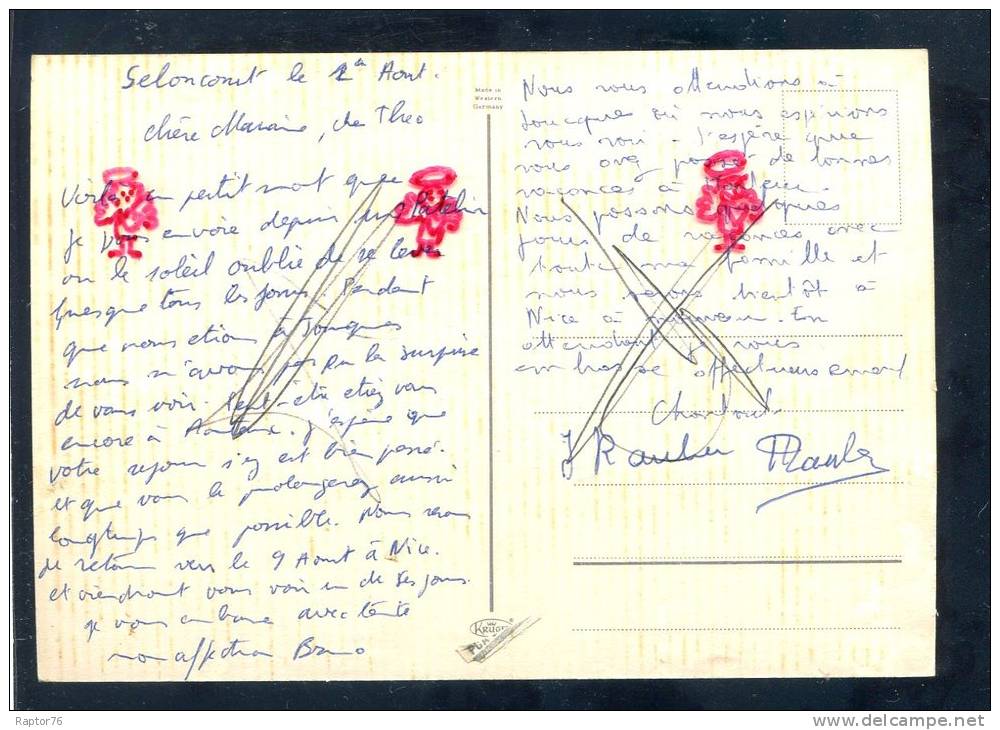 Seloncourt le 2 Aout.
chère Maraine, cher Theo
Voila un petit mot que
je vous envoie depuis
ou le soleil oublie de se lever
presque tous les jours. Pendant
que nous etions à Jouques
nous n'avons pas eu la surprise
de vous voir. Peut-être etiez vous
encore à . j'espère que
votre sejour s'y est bien passé.
et que vous le prolongerez aussi
longtemps que possible. Nous serons
de retour vers le 9 Aout à Nice.
et viendront vous voir un de ses jours.
je vous embrasse avec toute
mon affection Bruno
Made in
Western
Germany
KRÜGER
Nous vous attendions à
Jouques où nous espérions
vous voir. J'espère que
vous avez passé de bonnes
vacances à
Nous passons quelques
jours de vacances avec
toute ma famille et
nous serons bientôt à
Nice à nouveau. En
attendant je vous
embrasse affectueusement
Chantal
Raptor76
delcampe.net